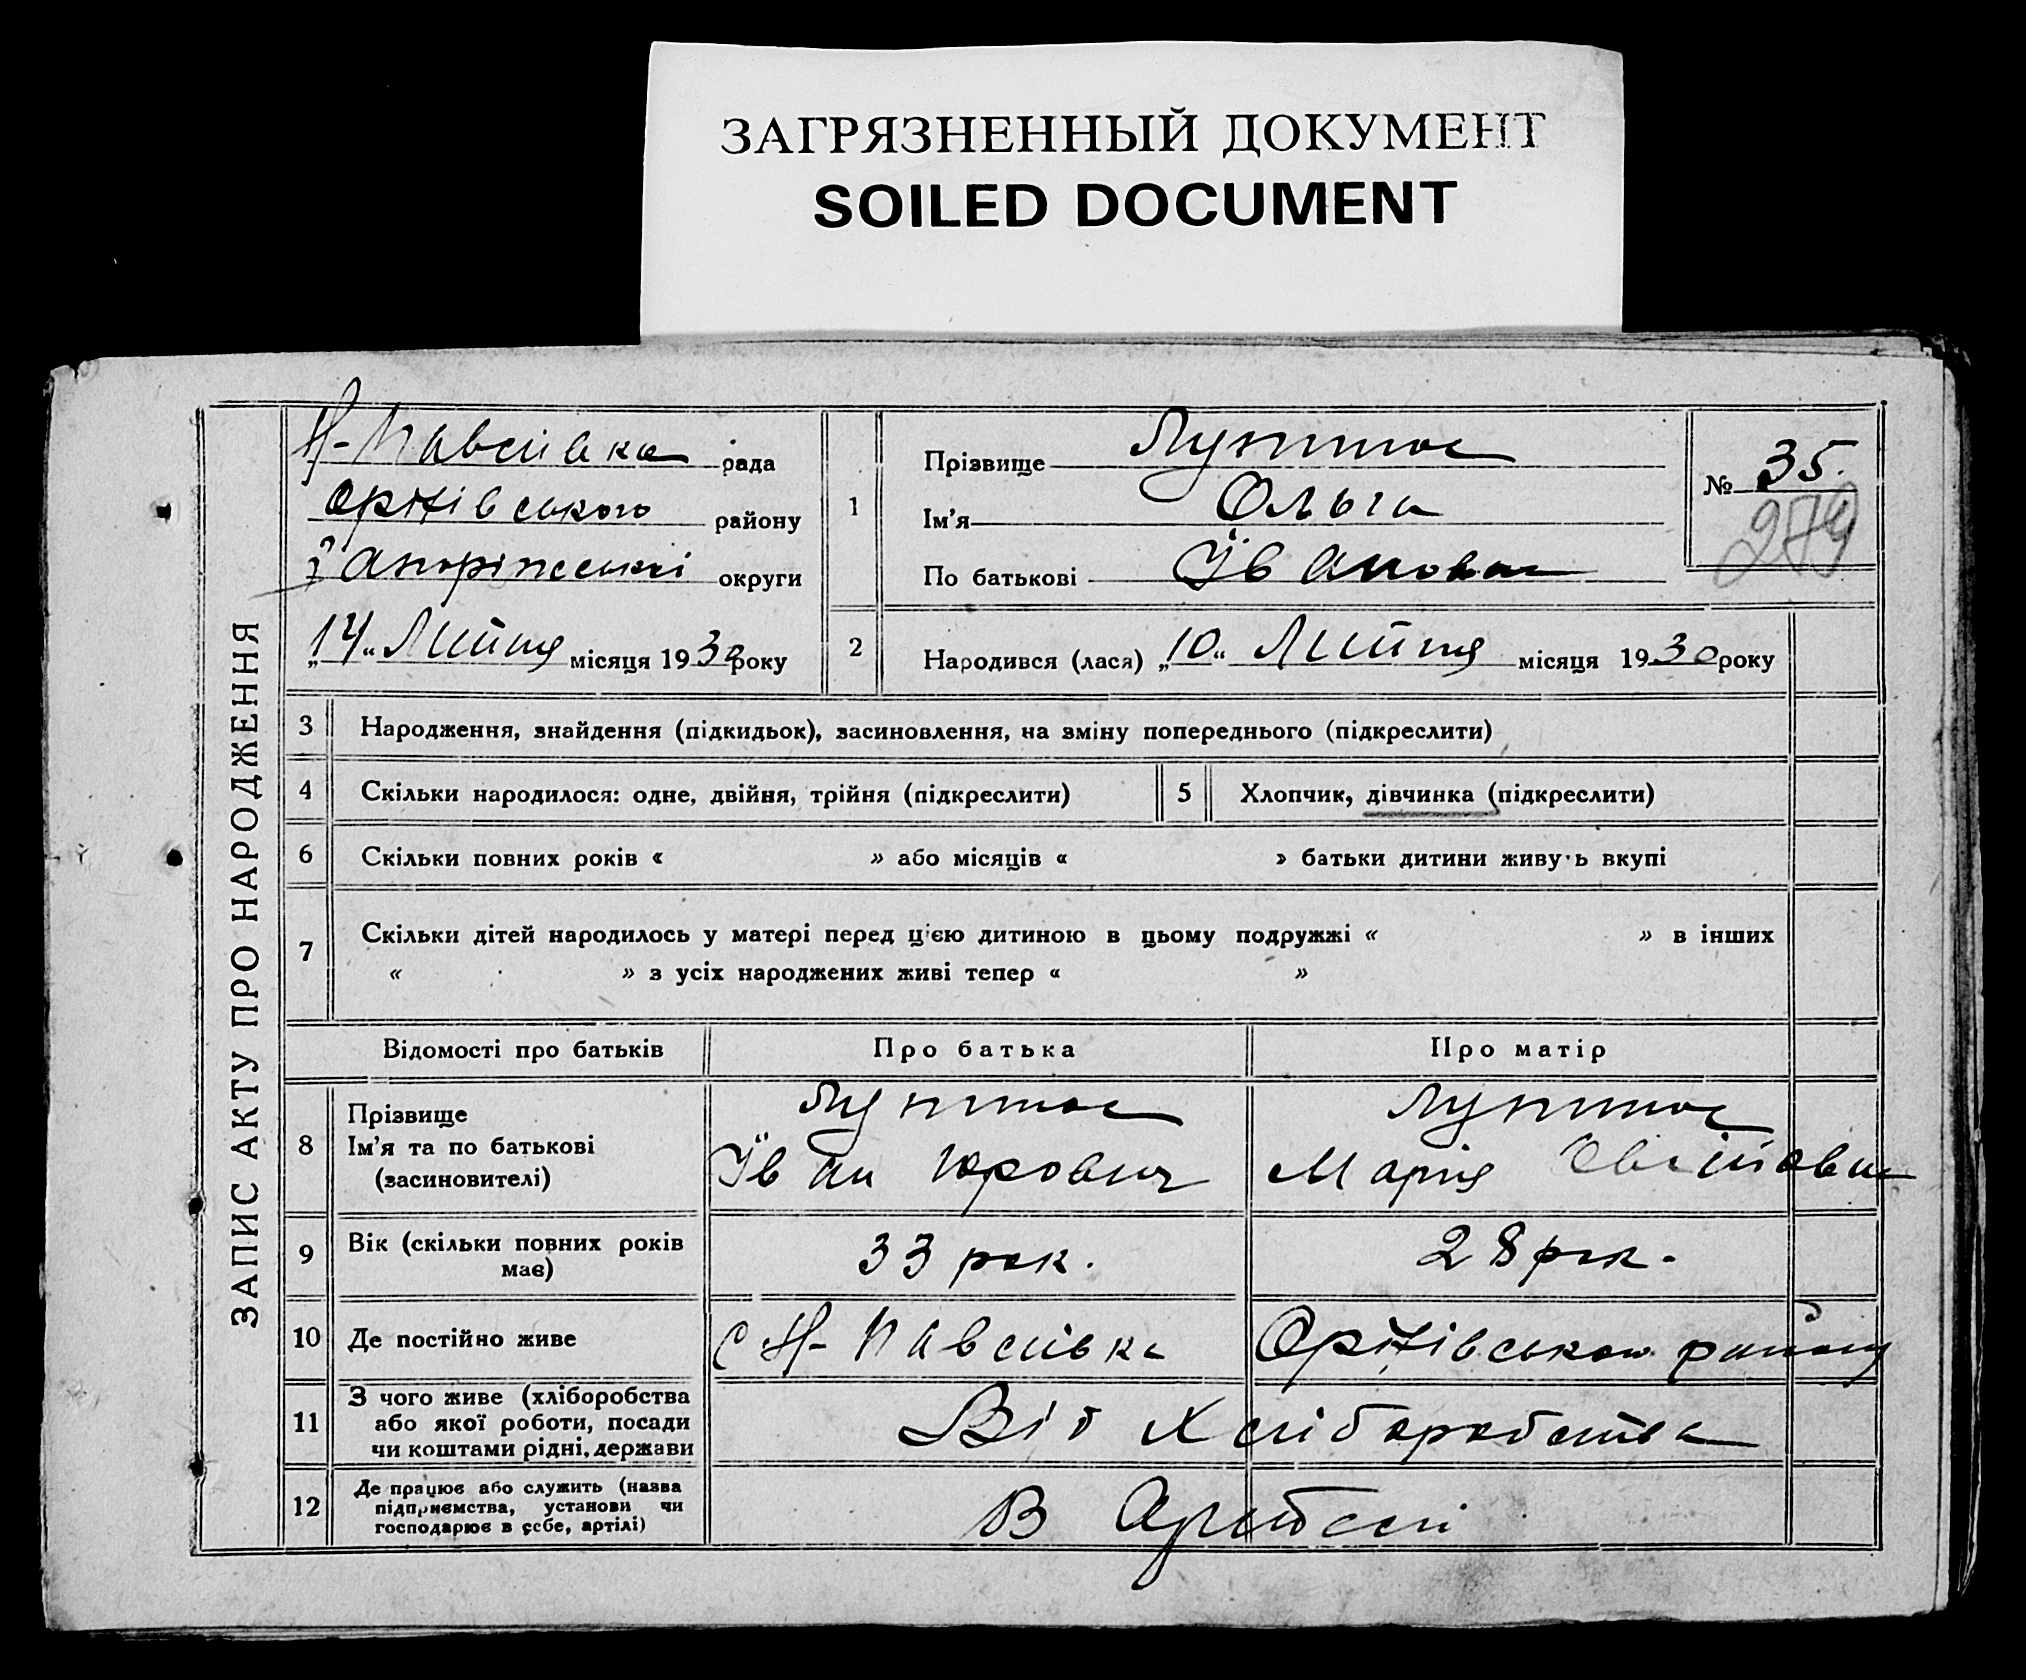 ЗАГРЯЗНЕННЫЙ ДОКУМЕНТ
SOILED DOCUMENT
ЗАПИС АКТУ ПРО НАРОДЖЕННЯ
Н-Павлівка рада
Оріхівського району
Запоріжської округи
„14“ Липця місяця 1930 року
1
Прізвище
Ім'я Ольга
По батькові Івановна
№ 35.
279
2
Народився (лася) „10“ Липця місяця 1930 року
3 Народження, знайдення (підкидьок), засиновлення, на зміну попереднього (підкреслити)
4 Скільки народилося: одне, двійня, трійня (підкреслити) 5 Хлопчик, дівчинка (підкреслити)
6 Скільки повних років « » або місяців « » батьки дитини живу·ь вкупі
7 Скільки дітей народилось у матері перед цією дитиною в цьому подружжі « » в інших
« » з усіх народжених живі тепер « »
Відомості про батьків Про батька Про матір
8 Прізвище
Ім'я та по батькові
(засиновителі)
Іван Юрович Марія
9 Вік (скільки повних років
має)
33 рок. 28 рок.
10 Де постійно живе с Н-Павлівка Оріхівського району
11 З чого живе (хліборобства
або якої роботи, посади
чи коштами рідні, держави
Від Хліборобства
12 Де працює або служить (назва
підприємства, установи чи
господарює в себе, артілі)
В Артелі